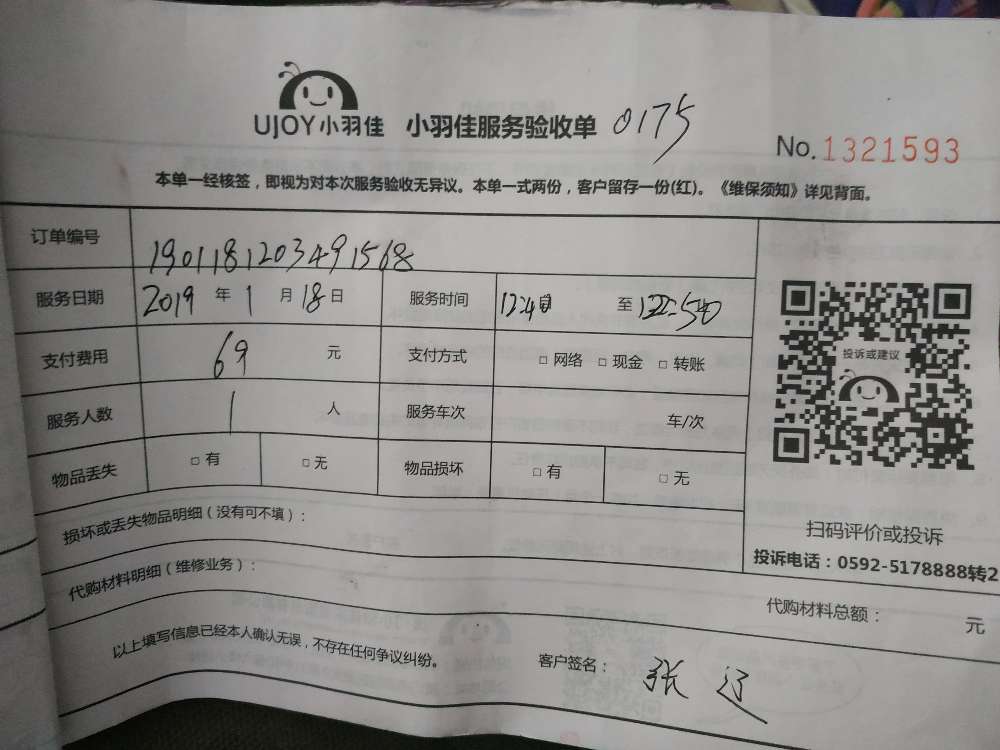 UJOY小羽佳 小羽佳服务验收单 0175
No.1321593
本单一经核签，即视为对本次服务验收无异议。本单一式两份，客户留存一份(红)。《维保须知》详见背面。
订单编号 1901181203491568
服务日期 2019 年 1 月 18 日 服务时间 12:40 至
支付费用 69 元 支付方式 □ 网络 □ 现金 □ 转账
投诉或建议
服务人数 1 人 服务车次 车/次
物品丢失 □ 有 □ 无 物品损坏 □ 有 □ 无
损坏或丢失物品明细（没有可不填）：
扫码评价或投诉
投诉电话：0592-5178888转2
代购材料明细（维修业务）：
代购材料总额： 元
以上填写信息已经本人确认无误，不存在任何争议纠纷。
客户签名： 张